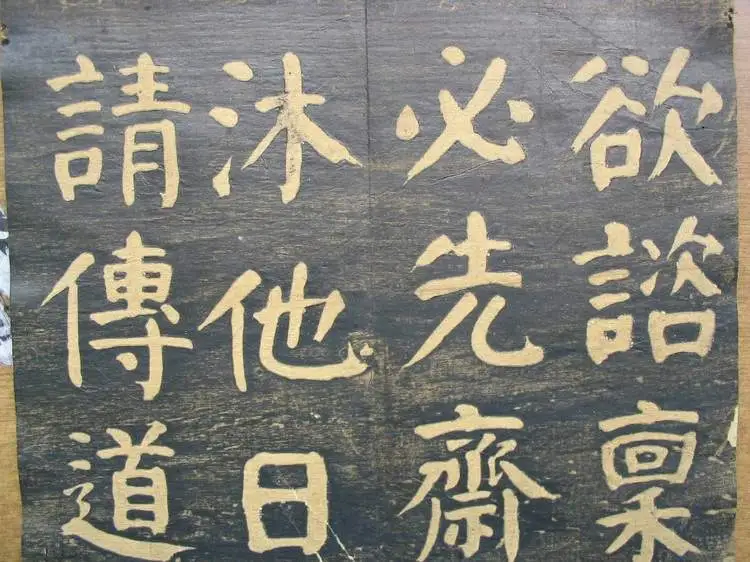 欲諮稟
必先齋
沐他日
請傳道